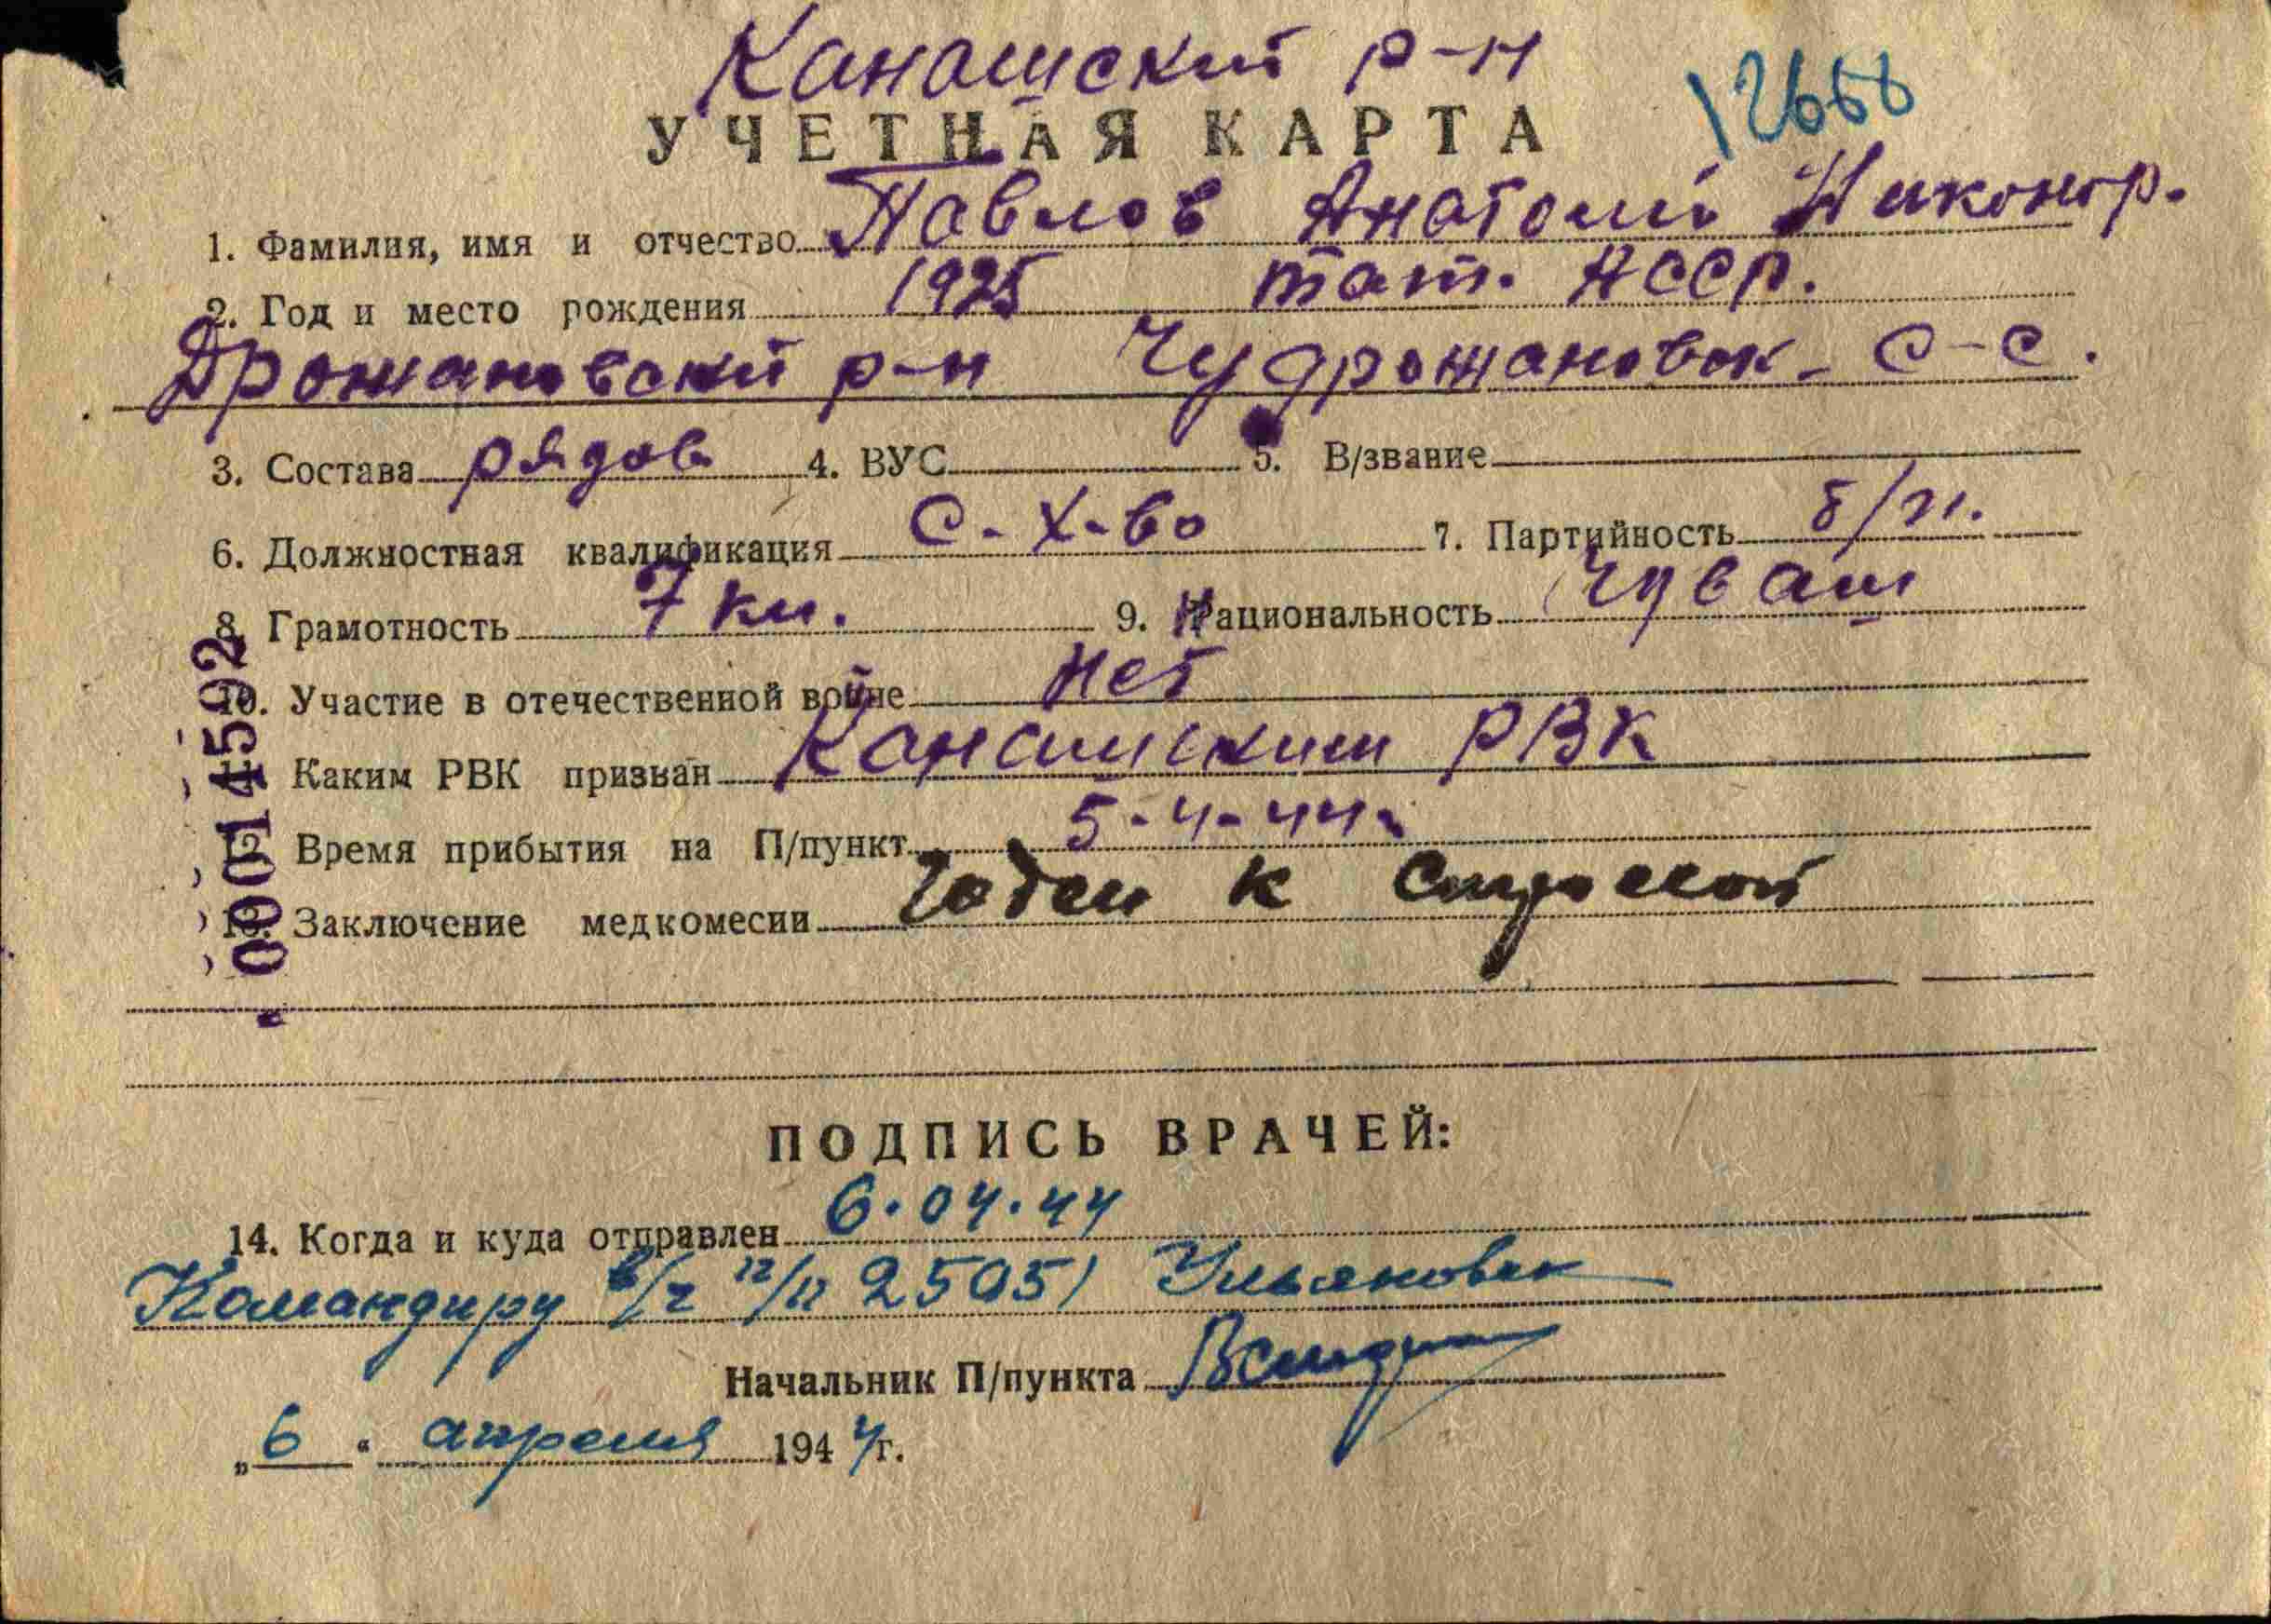 Канашский р-н
12668
УЧЕТНАЯ КАРТА
1. Фамилия, имя и отчество Павлов Анатолий Никонор.
2. Год и место рождения 1925 тат. АССР.
Дрожановский р-н Чудрожановск- с-с.
3. Состава рядов 4. ВУС 5. В/звание
6. Должностная квалификация с-х-во 7. Партийность б/п.
8. Грамотность 7 кл. 9. Национальность Чуваш
10. Участие в отечественной войне Нет
Каким РВК призван Канашским РВК
Время прибытия на П/пункт 5-4-44г
13. Заключение медкомесии Годен к строевой
00014592
ПОДПИСЬ ВРАЧЕЙ:
14. Когда и куда отправлен 6.04.44
Командиру в/ч п/п 25051 Ульяновск
Начальник П/пункта
„6“ апреля 1944г.